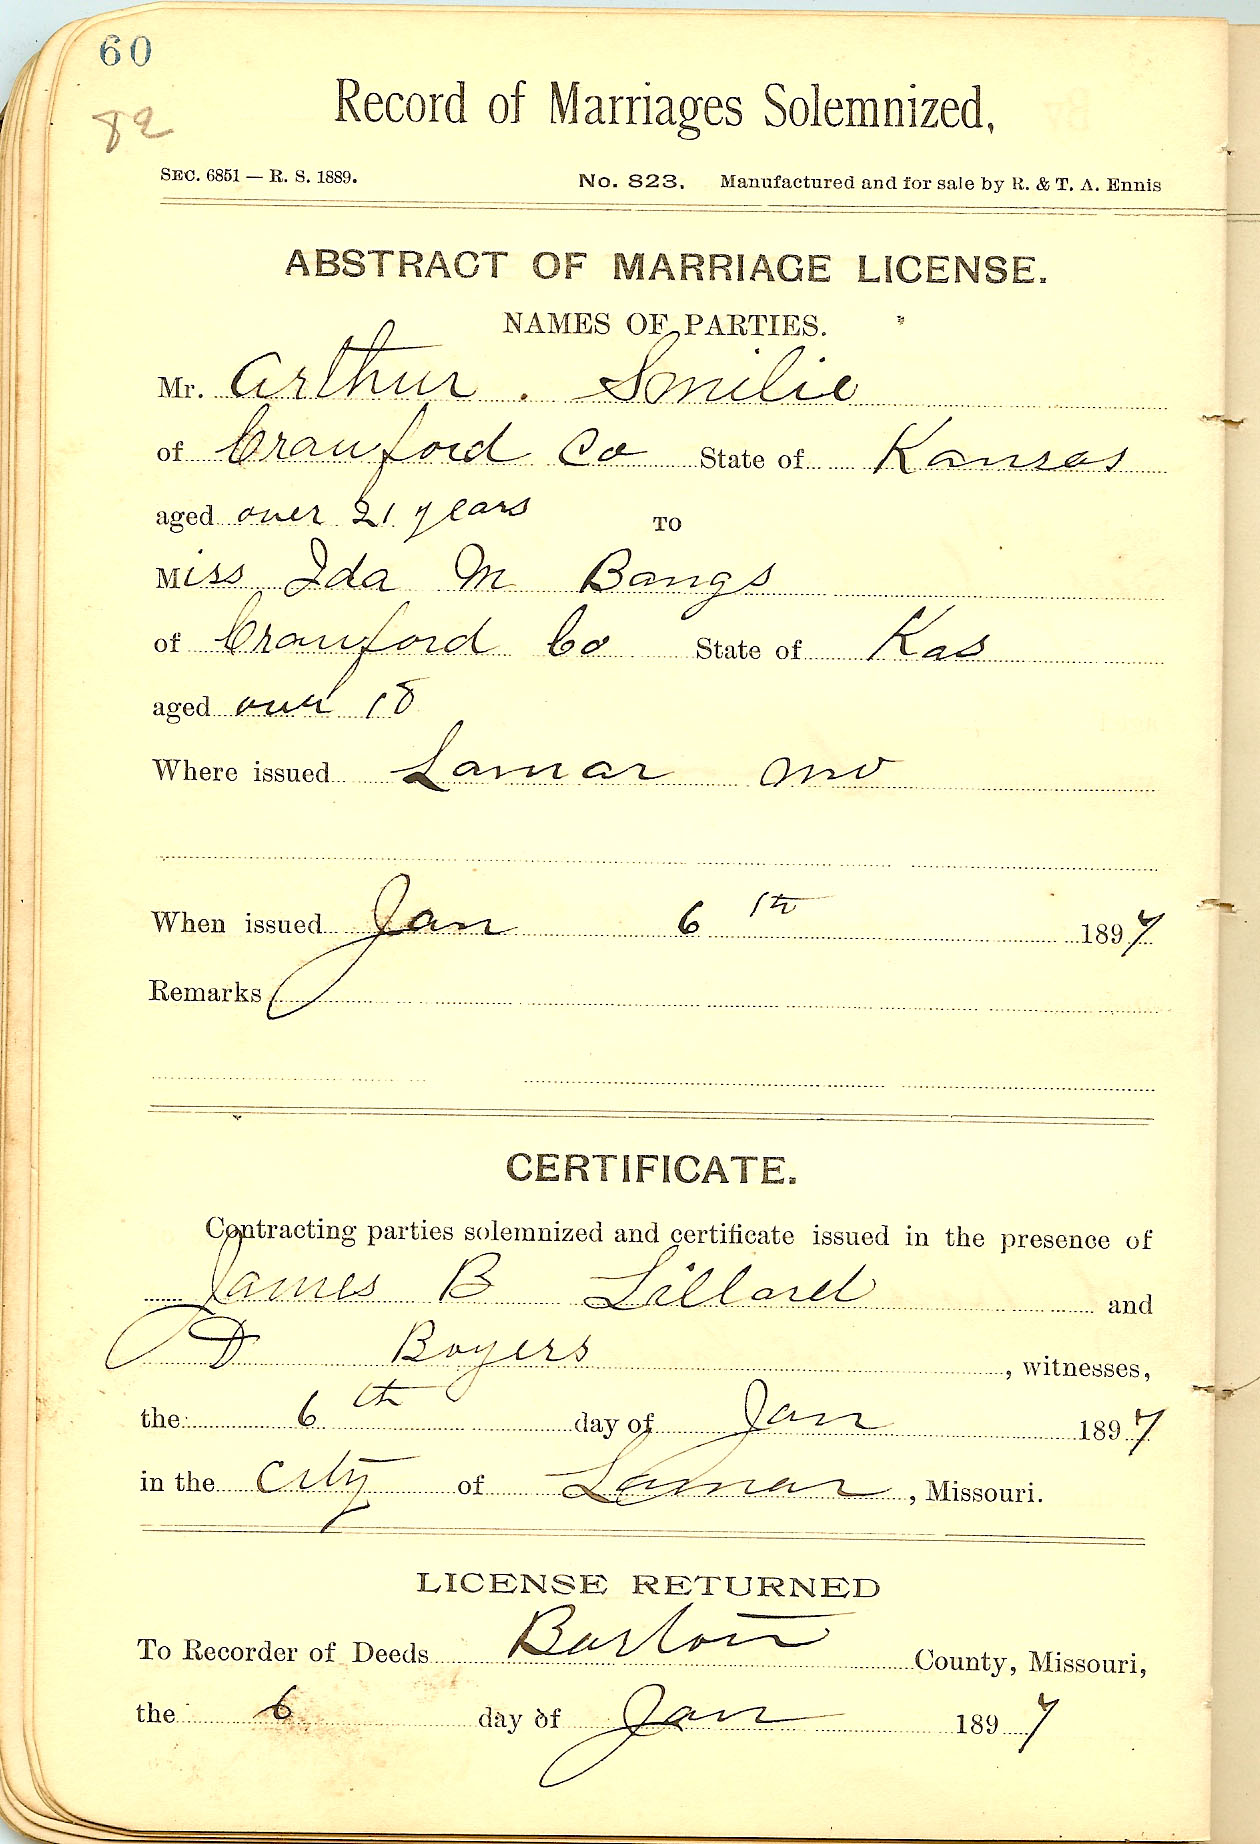 60
82
Record of Marriages Solemnized,
SEC. 6851 — R. S. 1889. No. 823. Manufactured and for sale by R. & T. A. Ennis
ABSTRACT OF MARRIAGE LICENSE.
NAMES OF PARTIES.
Mr. Arthur . Smilie
of Crawford Co State of Kansas
aged over 21 years TO
Miss Ida M Bangs
of Crawford Co State of Kas
aged over 18
Where issued Lamar Mo
When issued Jan 6th 1897
Remarks
CERTIFICATE.
Contracting parties solemnized and certificate issued in the presence of
James B Lillard and
D Boyers , witnesses,
the 6th day of Jan 1897
in the City of Lamar , Missouri.
LICENSE RETURNED
To Recorder of Deeds Barton County, Missouri,
the 6 day of Jan 1897